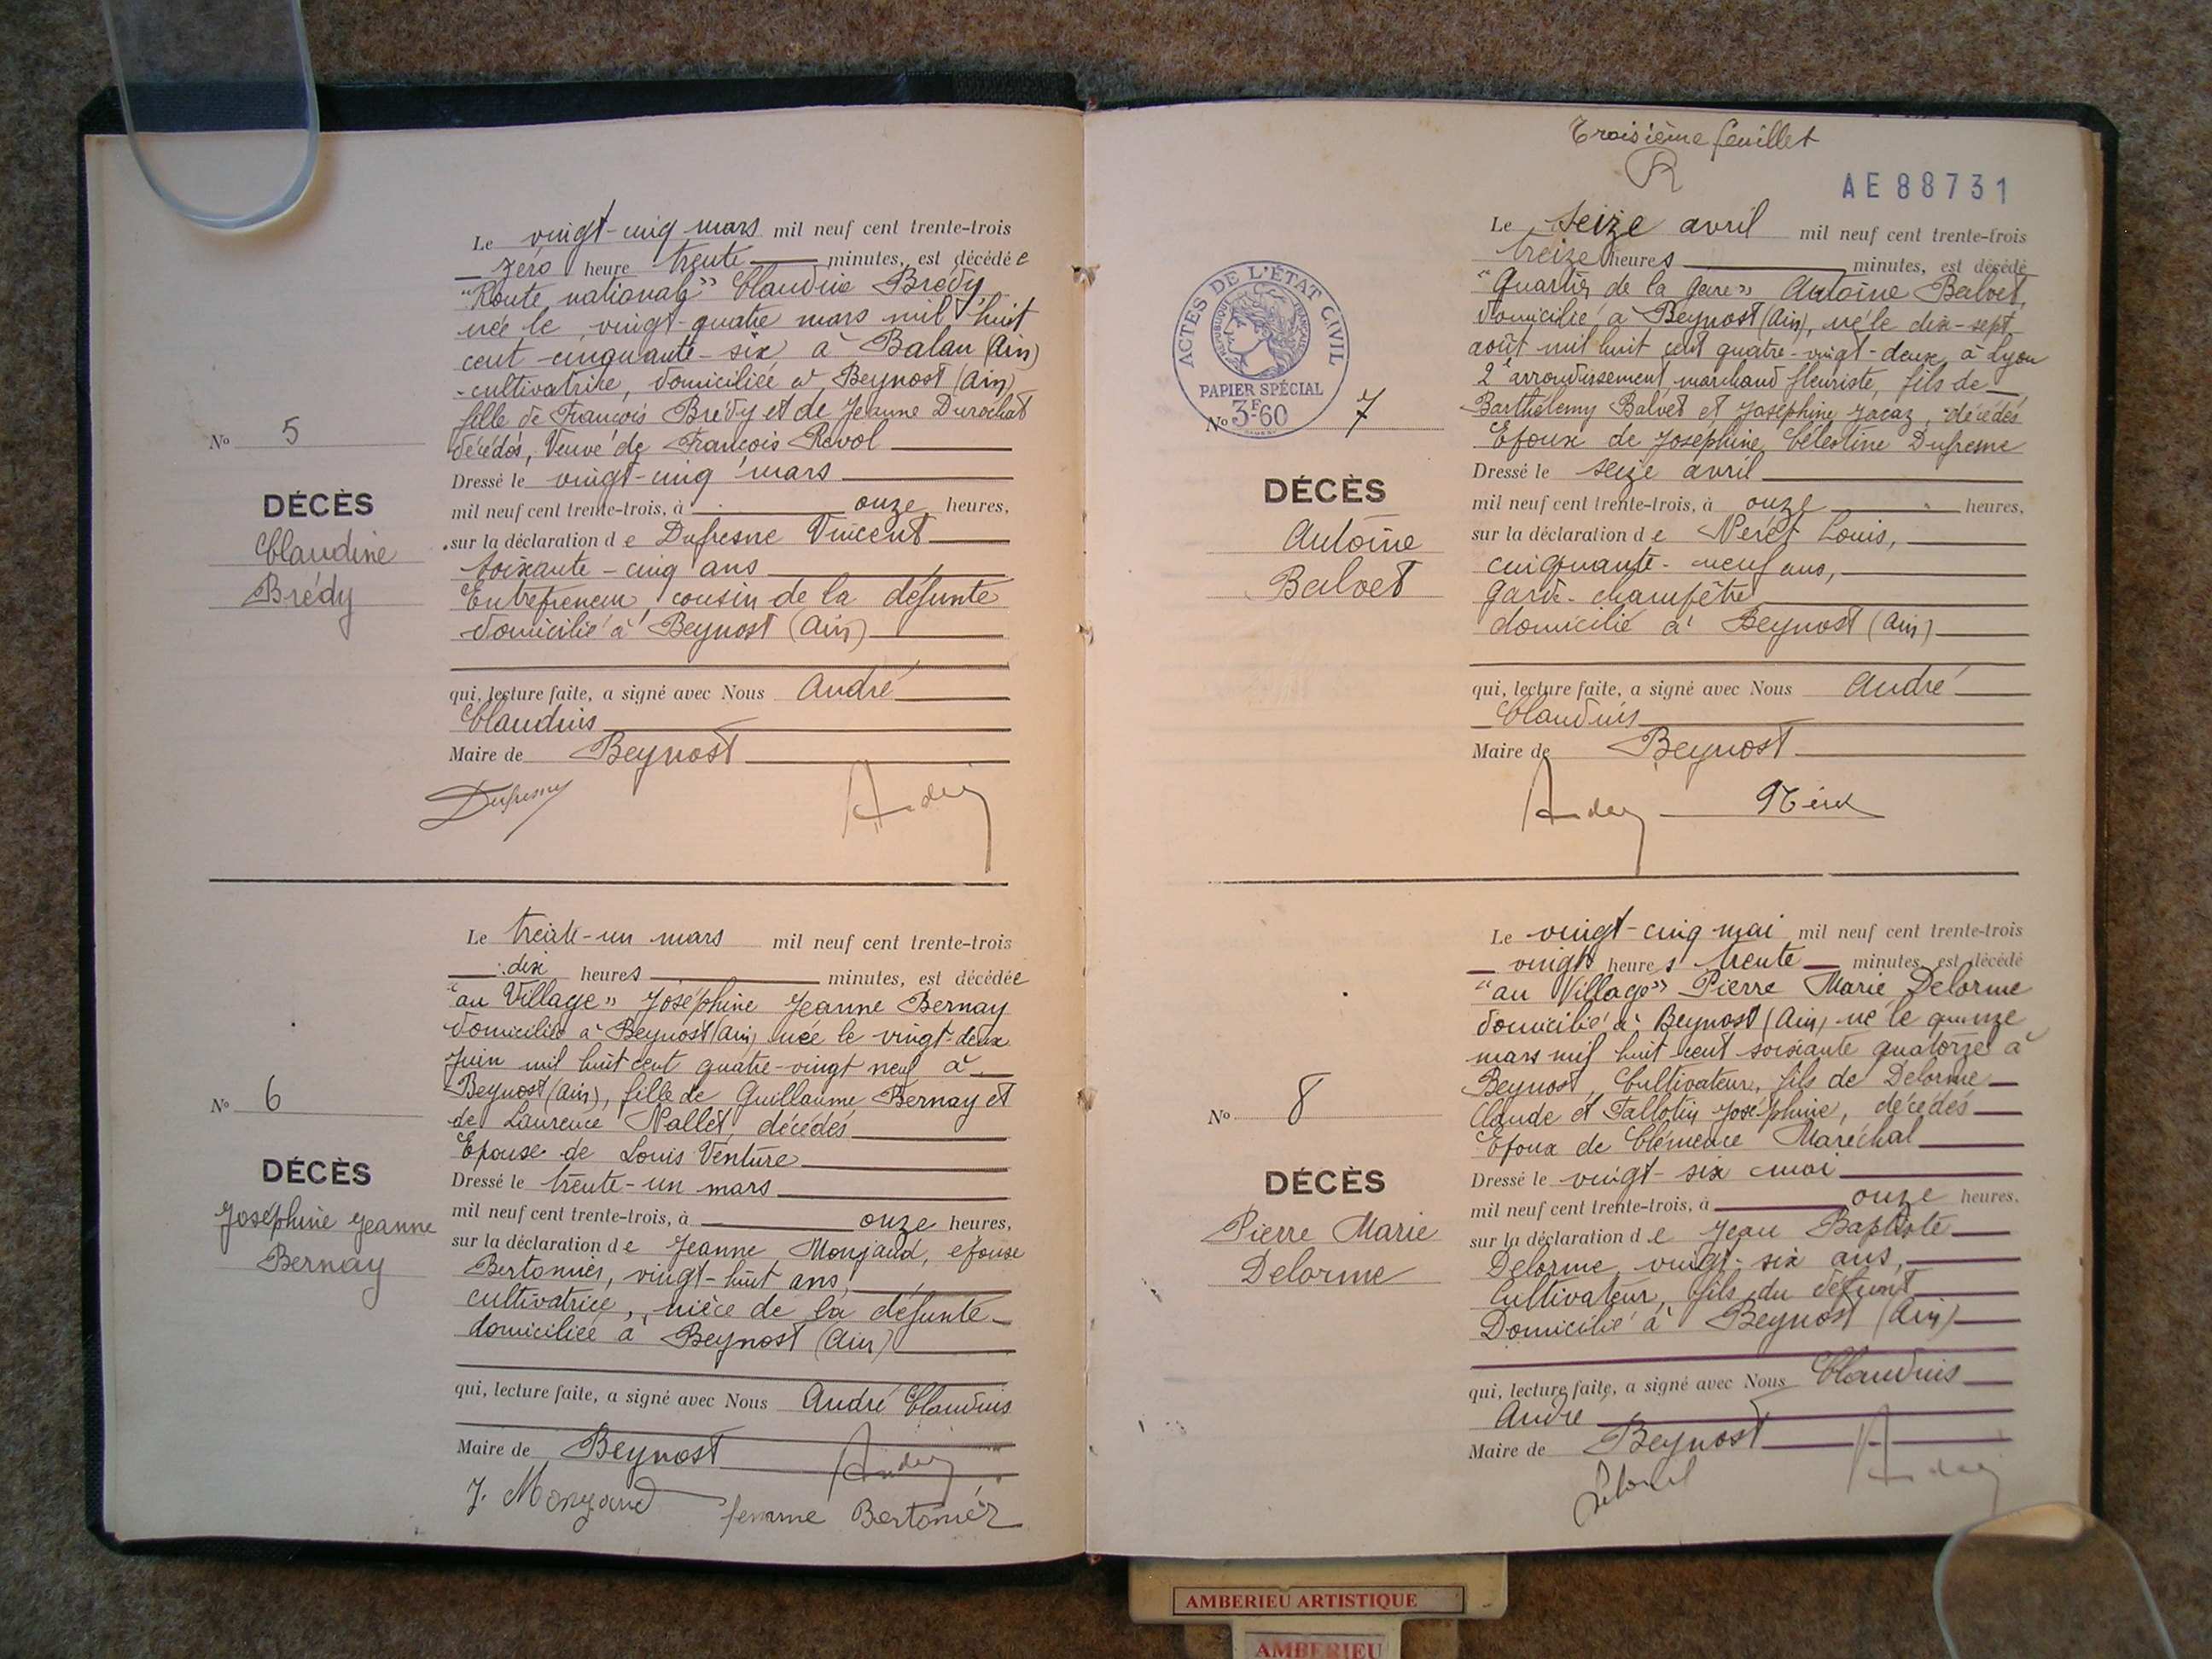 Le vingt-cinq mars mil neuf cent trente-trois
zéro heure trente minutes, est décédée
"Route nationale" Claudine Brédy,
née le vingt-quatre mars mil huit
cent cinquante-six à Balan (Ain)
cultivatrice, domiciliée à Beynost (Ain)
fille de François Brédy et de Jeanne Durochat
décédés, Veuve de François Revol
Dressé le vingt-cinq mars
mil neuf cent trente-trois, à onze heures,
sur la déclaration de Dufresne Vincent
soixante-cinq ans
Entrepreneur, cousin de la défunte
domicilié à Beynost (Ain)
qui, lecture faite, a signé avec Nous André
Claudius
Maire de Beynost
Dufresne André
No 5
DÉCÈS
Claudine
Brédy
Le trente-un mars mil neuf cent trente-trois
dix heures minutes, est décédée
"au Village" Joséphine Jeanne Bernay
domiciliée à Beynost (Ain) née le vingt-deux
Juin mil huit cent quatre-vingt neuf à
Beynost (Ain), fille de Guillaume Bernay et
de Laurence Nallet, décédés
Epouse de Louis Venture
Dressé le trente-un mars
mil neuf cent trente-trois, à onze heures,
sur la déclaration de Jeanne Monjaud, épouse
Bertonnier, vingt-huit ans,
cultivatrice, nièce de la défunte
domiciliée à Beynost (Ain)
qui, lecture faite, a signé avec Nous André Claudius
Maire de Beynost André
J. Monjaud femme Bertonièr
No 6
DÉCÈS
Joséphine Jeanne
Bernay
Troisième feuillet
R
AE88731
ACTES DE L'ÉTAT CIVIL
RÉPUBLIQUE FRANÇAISE
PAPIER SPÉCIAL
3F60
No 7
DÉCÈS
Antoine
Balvet
Le seize avril mil neuf cent trente-trois
treize heures minutes, est décédé
"Quartier de la Gare" Antoine Balvet,
domicilié à Beynost (Ain), né le dix-sept
août mil huit cent quatre-vingt-deux à Lyon
2e arrondissement, marchand fleuriste, fils de
Barthélemy Balvet et Joséphine Jacaz, décédés
Epoux de Joséphine Célestine Dufresne
Dressé le seize avril
mil neuf cent trente-trois, à onze heures,
sur la déclaration de Néret Louis,
cinquante-neuf ans,
garde-champêtre
domicilié à Beynost (Ain)
qui, lecture faite, a signé avec Nous André
Claudius
Maire de Beynost
André Néret
Le vingt-cinq mai mil neuf cent trente-trois
vingt heures trente minutes, est décédé
"au Village" Pierre Marie Delorme
domicilié à Beynost (Ain) né le quinze
mars mil huit cent soixante quatorze à
Beynost, Cultivateur, fils de Delorme
Claude et Tallotin Joséphine, décédés
Epoux de Clémence Maréchal
Dressé le vingt-six mai
mil neuf cent trente-trois, à onze heures.
sur la déclaration de Jean Baptiste
Delorme, vingt-six ans,
Cultivateur, fils du défunt
Domicilié à Beynost (Ain)
qui, lecture faite, a signé avec Nous Claudius
André
Maire de Beynost
André
No 8
DÉCÈS
Pierre Marie
Delorme
AMBERIEU ARTISTIQUE
AMBERIEU